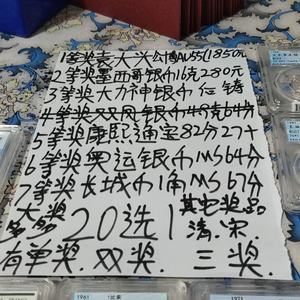 1等奖袁大头 MS51 1850元
2等奖墨西哥银币16克280元
3等奖大力神银币 仁铸
4等奖双凤银币48克64分
5等奖康熙通宝82分27+
6等奖奥运银币MS64分
7等奖长城币1角MS67分
大奖 20选1 其它奖品
清.宋
有单奖.双奖.三奖.
1981